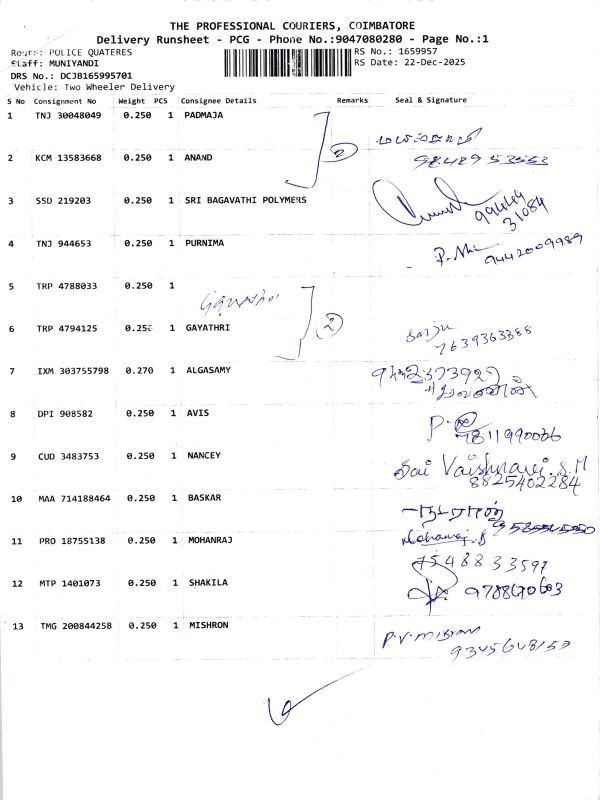 THE PROFESSIONAL COURIERS, COIMBATORE
Delivery Runsheet - PCG - Phone No.:9047080280 - Page No.:1
Route: POLICE QUATERES
RS No.: 1659957
Staff: MUNIYANDI
RS Date: 22-Dec-2025
DRS No.: DCJB165995701
Vehicle: Two Wheeler Delivery
S No Consignment No Weight PCS Consignee Details Remarks Seal & Signature
1 TNJ 30048049 0.250 1 PADMAJA
2
2 KCM 13583668 0.250 1 ANAND
3 SSD 219203 0.250 1 SRI BAGAVATHI POLYMERS
99449
31084
4 TNJ 944653 0.250 1 PURNIMA
9442009989
5 TRP 4788033 0.250 1
2
6 TRP 4794125 0.250 1 GAYATHRI
Sanju
7639363388
7 IXM 303755798 0.270 1 ALGASAMY
8 DPI 908582 0.250 1 AVIS
7811990036
9 CUD 3483753 0.250 1 NANCEY
Sai Vaishnavi.S.M
8825402284
10 MAA 714188464 0.250 1 BASKAR
நடராஜன்
11 PRO 18755138 0.250 1 MOHANRAJ
Mohanraj.B
7548833597
12 MTP 1401073 0.250 1 SHAKILA
13 TMG 200844258 1 0.250 MISHRON
P.V.Mishron